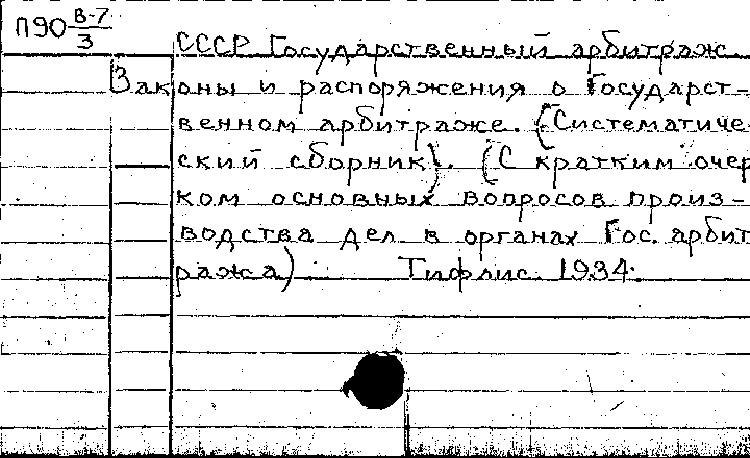 П90 В-7/3
СССР. Государственный арбитраж.
Законы и распоряжения о Государст-
венном арбитраже. (Систематиче-
ский сборник). (С кратким очер
ком основных вопросов произ-
водства дел в органах Гос. арбит
ража). Тифлис. 1934.